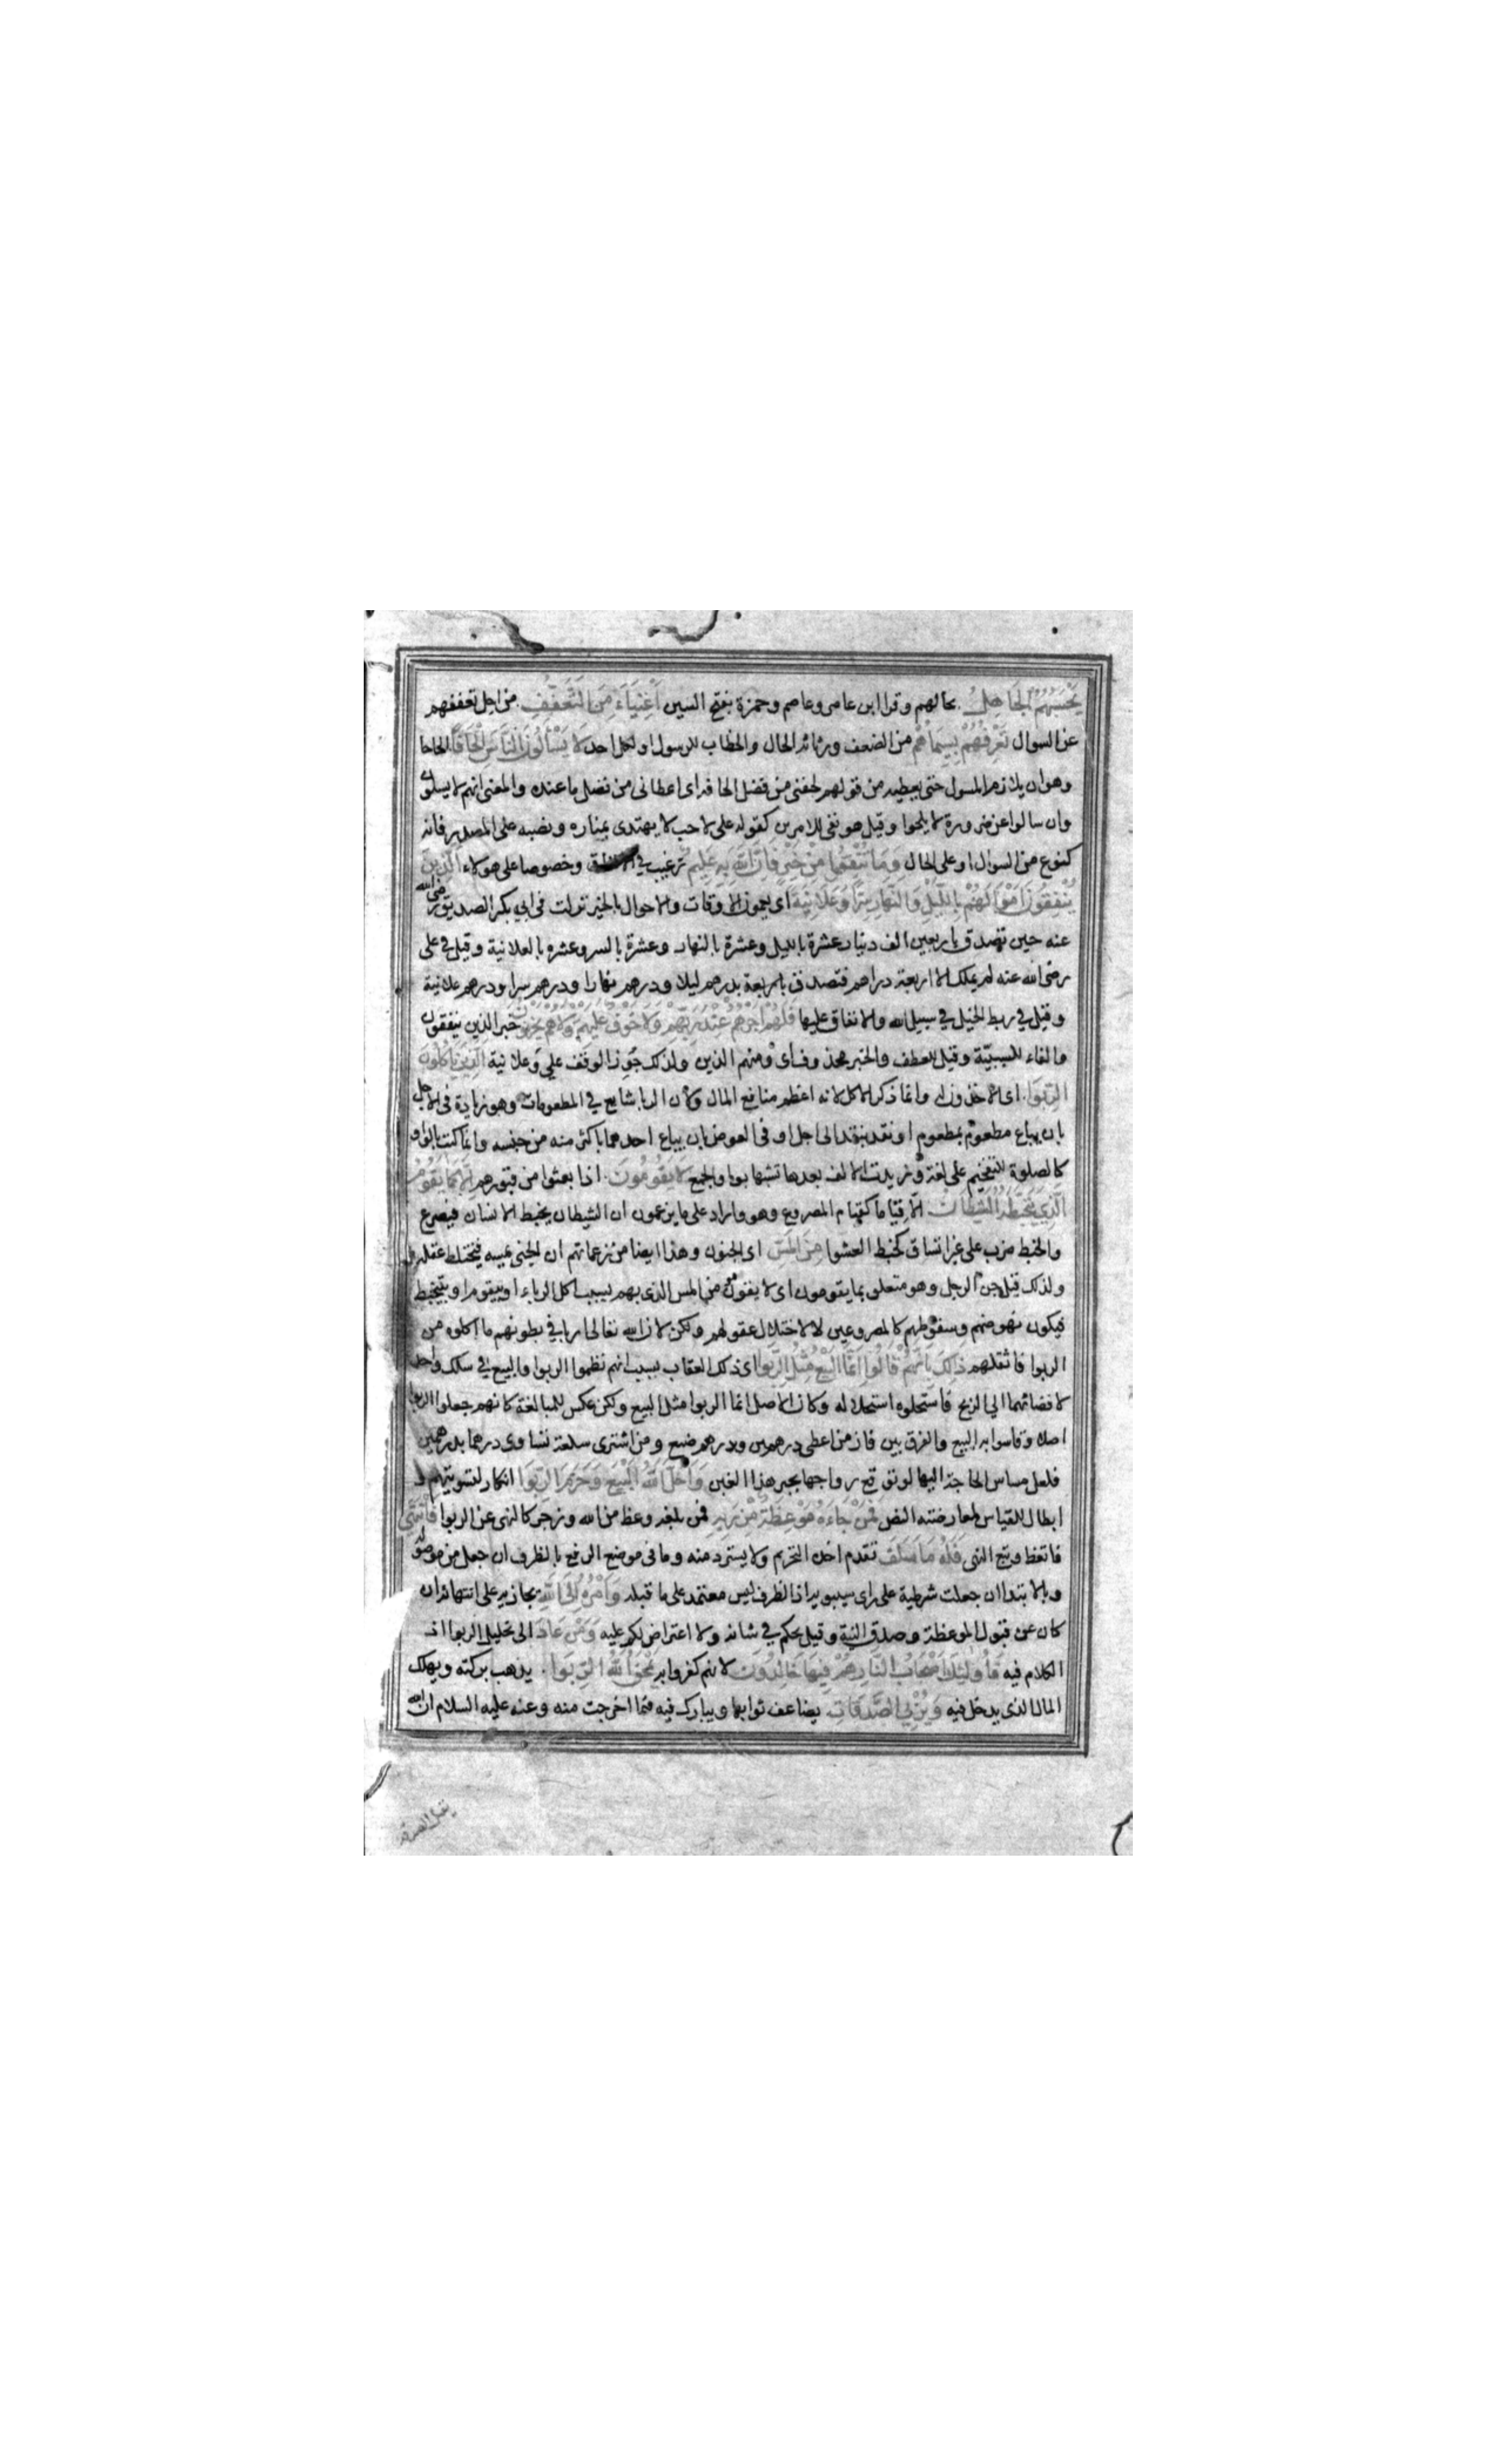 يَحْسَبُهُمُ الْجَاهِلُ بحالهم وقرا ابن عامر وعاصم وحمزة بفتح السين أَغْنِيَاءَ مِنَ التَّعَفُّفِ من اجل تعففهم
عن السوال تَعْرِفُهُمْ بِسِيمَاهُمْ من الضعف ورثاثة الحال والخطاب للرسول او لكل احد لَا يَسْأَلُونَ النَّاسَ إِلْحَافًا الحاحا
وهو ان يلازم المسول حتى يعطيه من قولهم لحفنى من فضل لحافه اى اعطانى من فضل ما عنده والمعنى انهم لا يسلون
وان سالوا عن ضرورة لا يلحوا وقيل هو نفى للامرين كقوله على لاحب لا يهتدى بمناره ونصبه على المصدر فانه
كنوع من السوال او على الحال وَمَا تُنْفِقُوا مِنْ خَيْرٍ فَإِنَّ اللَّهَ بِهِ عَلِيمٌ ترغيب في وخصوصا على هولاء الَّذِينَ
يُنْفِقُونَ أَمْوَالَهُمْ بِاللَّيْلِ وَالنَّهَارِ سِرًّا وَعَلَانِيَةً اى يعمون الاوقات والاحوال بالخير نزلت فى ابي بكر الصديق رضى الله
عنه حين تصدق باربعين الف دينار عشرة بالليل وعشرة بالنهار وعشرة بالسر وعشره بالعلانية وقيل في على
رضى الله عنه لم يملك الا اربعة دراهم فتصدق بدرهم ليلا ودرهم نهارا ودرهم سرا ودرهم علانية
وقيل في ربط الخيل في سبيل الله والانفاق عليها فَلَهُمْ أَجْرُهُمْ عِنْدَ رَبِّهِمْ وَلَا خَوْفٌ عَلَيْهِمْ وَلَا هُمْ يَحْزَنُونَ خبر الذين ينفقون
والفاء للسببيّة وقيل للعطف والخبر محذوف اى ومنهم الذين ولذلك جُوِز الوقف على وعلانية الَّذِينَ يَأْكُلُونَ
الرِّبَوا اى الاخذون له وانما ذكر الاكل لانه اعظم منافع المال ولان الربا شايع في المطعومات وهو زيادة فى الاجل
بان يباع مطعوم بمطعوم او نقد بنقد الى اجل او فى العوض بان يباع احدهما باكثر منه من جنسه وانما كتب بالواو
كالصلوة للتفخيم على لغة وزيدت الالف بعدها تشبها بواو الجمع لَا يَقُومُونَ اذا بعثوا من قبورهم إِلَّا كَمَا يَقُومُ
الَّذِي يَتَخَبَّطُهُ الشَّيْطَانُ الا قياما كقيام المصروع وهو وارد على ما يزعمون ان الشيطان يخبط الانسان فيصرع
والخبط ضرب على غير اتساق كخبط العشوا مِنَ الْمَسِّ اى الجنون وهذا ايضا من زعماتهم ان الجنى يمسه فيختلط عقله
ولذلك قيل جن الرجل وهو متعلق بما يقومون اى لا يقومون من المس الذى بهم بسبب اكل الرباء او بيقوم او بيتخبط
فيكون نهوضهم وسقوطهم كالمصروعين لا لاختلال عقولهم ولكن لان الله تعالى اربا في بطونهم ما اكلوه من
الربوا فاثقلهم ذَلِكَ بِأَنَّهُمْ قَالُوا إِنَّمَا الْبَيْعُ مِثْلُ الرِّبَوا اى ذلك العقاب بسبب انهم نظموا الربوا والبيع في سلك واحد
لافضائهما الى الربح فاستحلوه استحلاله وكان الاصل انما الربوا مثل البيع ولكن عكس للمبالغة كانهم جعلوا الربوا
اصلا وقاسوا به البيع والفرق بين فان من اعطى درهمين بدرهم ضيع ومن اشترى سلعة تساوى درهما بدرهمين
فلعل مساس الحاجة اليها او توقع رواجها يجبر هذا الغبن وَأَحَلَّ اللَّهُ الْبَيْعَ وَحَرَّمَ الرِّبَوا انكار لتسويتهم و
ابطال للقياس لمعارضته النص فَمَنْ جَاءَهُ مَوْعِظَةٌ مِنْ رَبِّهِ فمن بلغه وعظ من الله وزجر كالنهى عن الربوا فَانْتَهَى
فاتعظ وتبع النهى فَلَهُ مَا سَلَفَ تقدم اخذه التحريم ولا يسترد منه وما فى موضع الرفع بالظرف ان جعل من موصولة
وبالابتدا ان جعلت شرطية على راى سيبويه اذ الظرف ليس معتمد على ما قبله وَأَمْرُهُ إِلَى اللَّهِ يجازيه على انتهائه ان
كان عن قبول الموعظة وصدق النية وقيل يحكم في شانه ولا اعتراض لكم عليه وَمَنْ عَادَ الى تحليل الربوا اذ
الكلام فيه فَأُولَئِكَ أَصْحَابُ النَّارِ هُمْ فِيهَا خَالِدُونَ لانهم كفروا به يَمْحَقُ اللَّهُ الرِّبَوا يذهب بركته ويهلك
المال الذى يدخل فيه وَيُرْبِي الصَّدَقَاتِ يضاعف ثوابها ويبارك فيه مما اخرجت منه وعنه عليه السلام ان الله
يقبل الصدقة